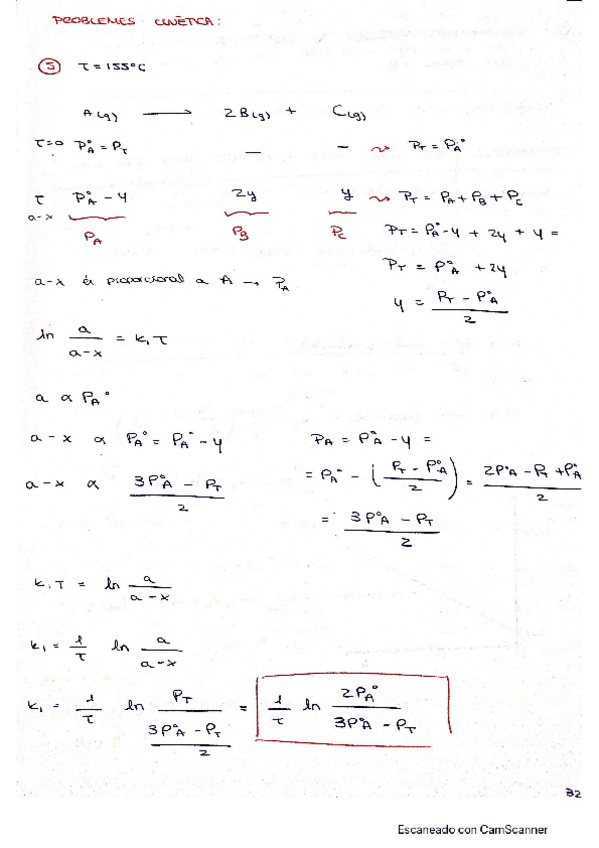 PROBLEMES CINÈTICA:
⑤ T = 155°C
A(g) ⟶ 2B(g) + C(g)
τ=0 P°A = PT — – ⤳ PT = P°A
τ P°A – y 2y y ⤳ PT = PA + PB + PC
a-x PA PB PC PT = P°A - y + 2y + y =
PT = P°A + 2y
a-x és proporcional a A → PA
y = (PT - P°A) / 2
ln a/(a-x) = k₁τ
a α PA°
a - x α PA° = PA° - y PA = P°A - y =
a - x α (3P°A - PT)/2 = PA° - ((PT - P°A)/2) = (2P°A - PT + P°A)/2
= (3P°A - PT)/2
k₁τ = ln a/(a-x)
k₁ = 1/τ ln a/(a-x)
k₁ = 1/τ ln PT/((3P°A - PT)/2) = 1/τ ln 2PA°/(3P°A - PT)
32
Escaneado con CamScanner